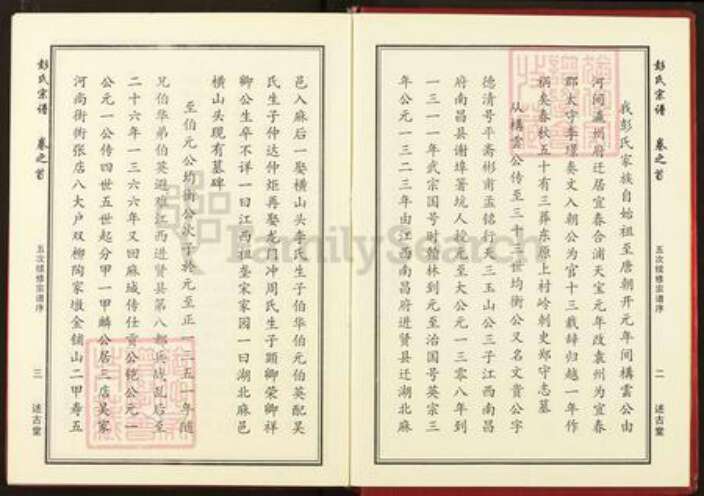 彭氏宗谱 卷之首
五次续修宗谱序
二 述古堂
我彭氏家族自始祖至唐朝开元年间构云公由
河间瀛州府迁居宜春合浦天宝元年改袁州为宜春
郡太守李璟奏文入朝公为官十三载辞归越一年作
祸矣春秋五十有三葬东原上村岭刺史郑守志墓
从构云公传至三十三世均衡公又名文贵公字
德清号平斋彬甫孟铭行天三玉山公三子江西南昌
府南昌县谢埠署坑人投元至大公元一三零八年到
一三一一年武宗国号时翰林到元至治国号英宗三
年公元一三二三年由江西南昌府进贤县迁湖北麻
邑入麻后一娶横山头李氏生子伯华伯元伯英配吴
氏生子仲达仲炬再娶龙门冲周氏生子显卿荣卿祥
卿公生卒不详一曰江西祖茔宋家园一曰湖北麻邑
横山头现有墓碑
至伯元公均衡公次子於元至正一三五一年随
兄伯华弟伯英避难江西进贤县第八都兵战乱后至
二十六年一三六六年又回麻城传仕贡公铠公元一
公元一公传四世五世起分甲一甲麟公居三店吴家
河尚街街张店八大户双柳陶家墩金铺山二甲寿五
彭氏宗谱 卷之首
五次续修宗谱序
三 述古堂
FamilySearch